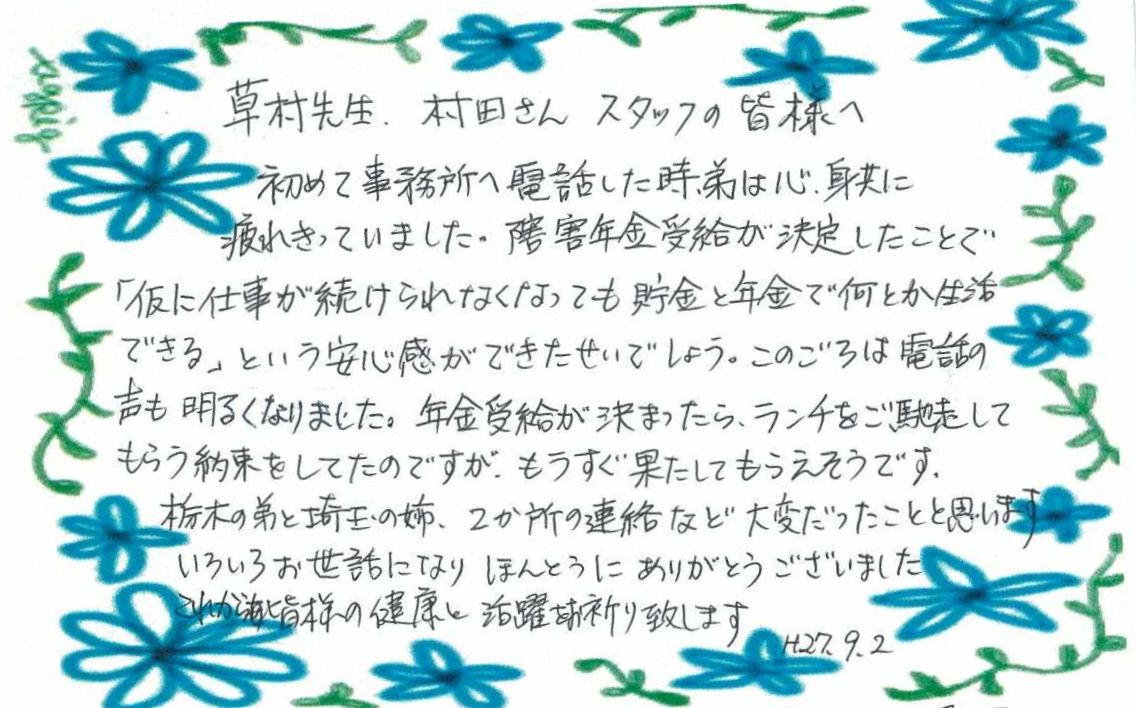 草村先生、村田さん スタッフの皆様へ
初めて事務所へ電話した時、弟は心、身共に
疲れきっていました。障害年金受給が決定したことで
「仮に仕事が続けられなくなっても貯金と年金で何とか生活
できる」という安心感ができたせいでしょう。このごろは電話の
声も明るくなりました。年金受給が決まったら、ランチをご馳走して
もらう約束をしてたのですが、もうすぐ果たしてもらえそうです。
栃木の弟と埼玉の姉、2か所の連絡など大変だったことと思います
いろいろお世話になり ほんとうに ありがとうございました
皆様の健康と活躍お祈り致します
H.27.9.2